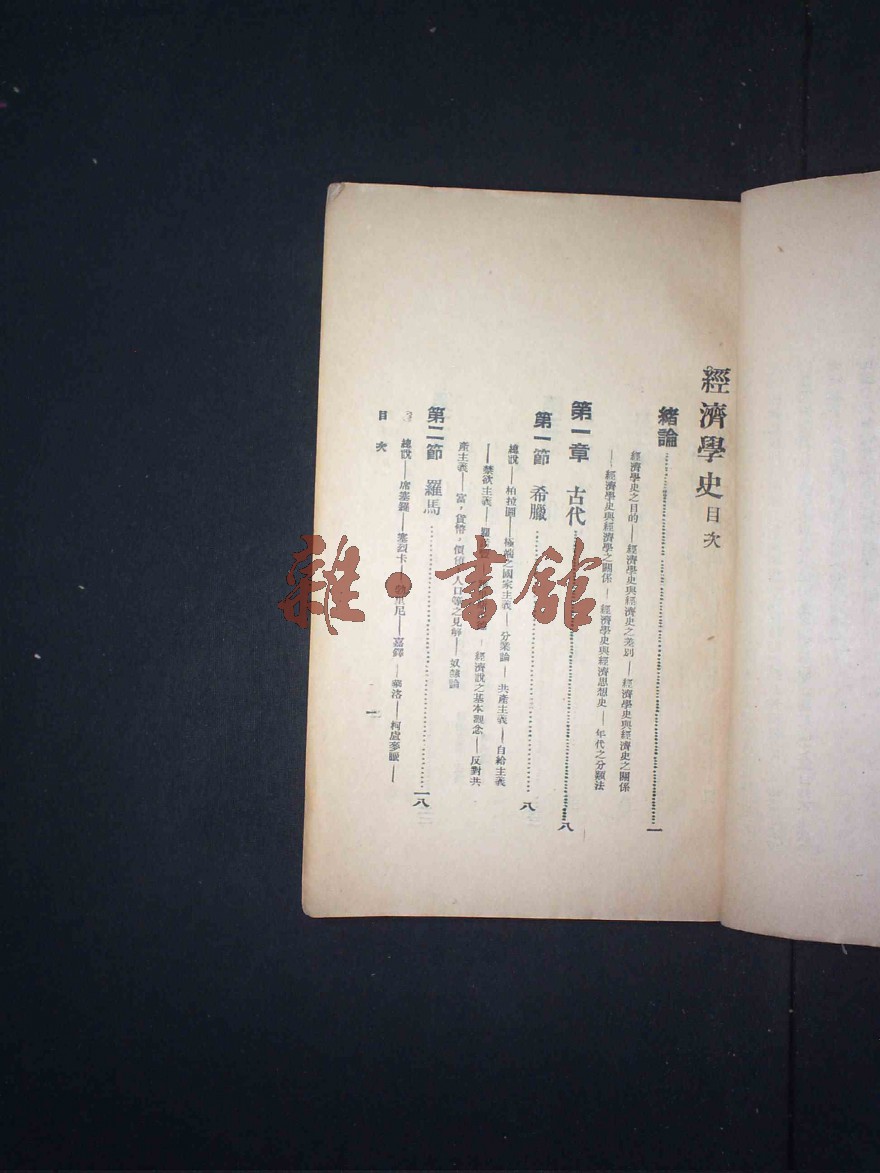 經濟學史目次
緒論……一
經濟學史之目的——經濟學史與經濟史之差別——經濟學史與經濟史之關係
——經濟學史與經濟學之關係——經濟學史與經濟思想史——年代之分類法
第一章 古代……八
第一節 希臘……八
總說——柏拉圖——極端之國家主義——分業論——共產主義——自給主義
——禁欲主義——經濟說之基本觀念——反對共
產主義——富，貨幣，價值，人口等之見解——奴隸論
第二節 羅馬……一八
總說——席塞錄——塞烈卡——尼——嘉鐸——窪洛——柯盧麥眠——
目次
一
雜·書館